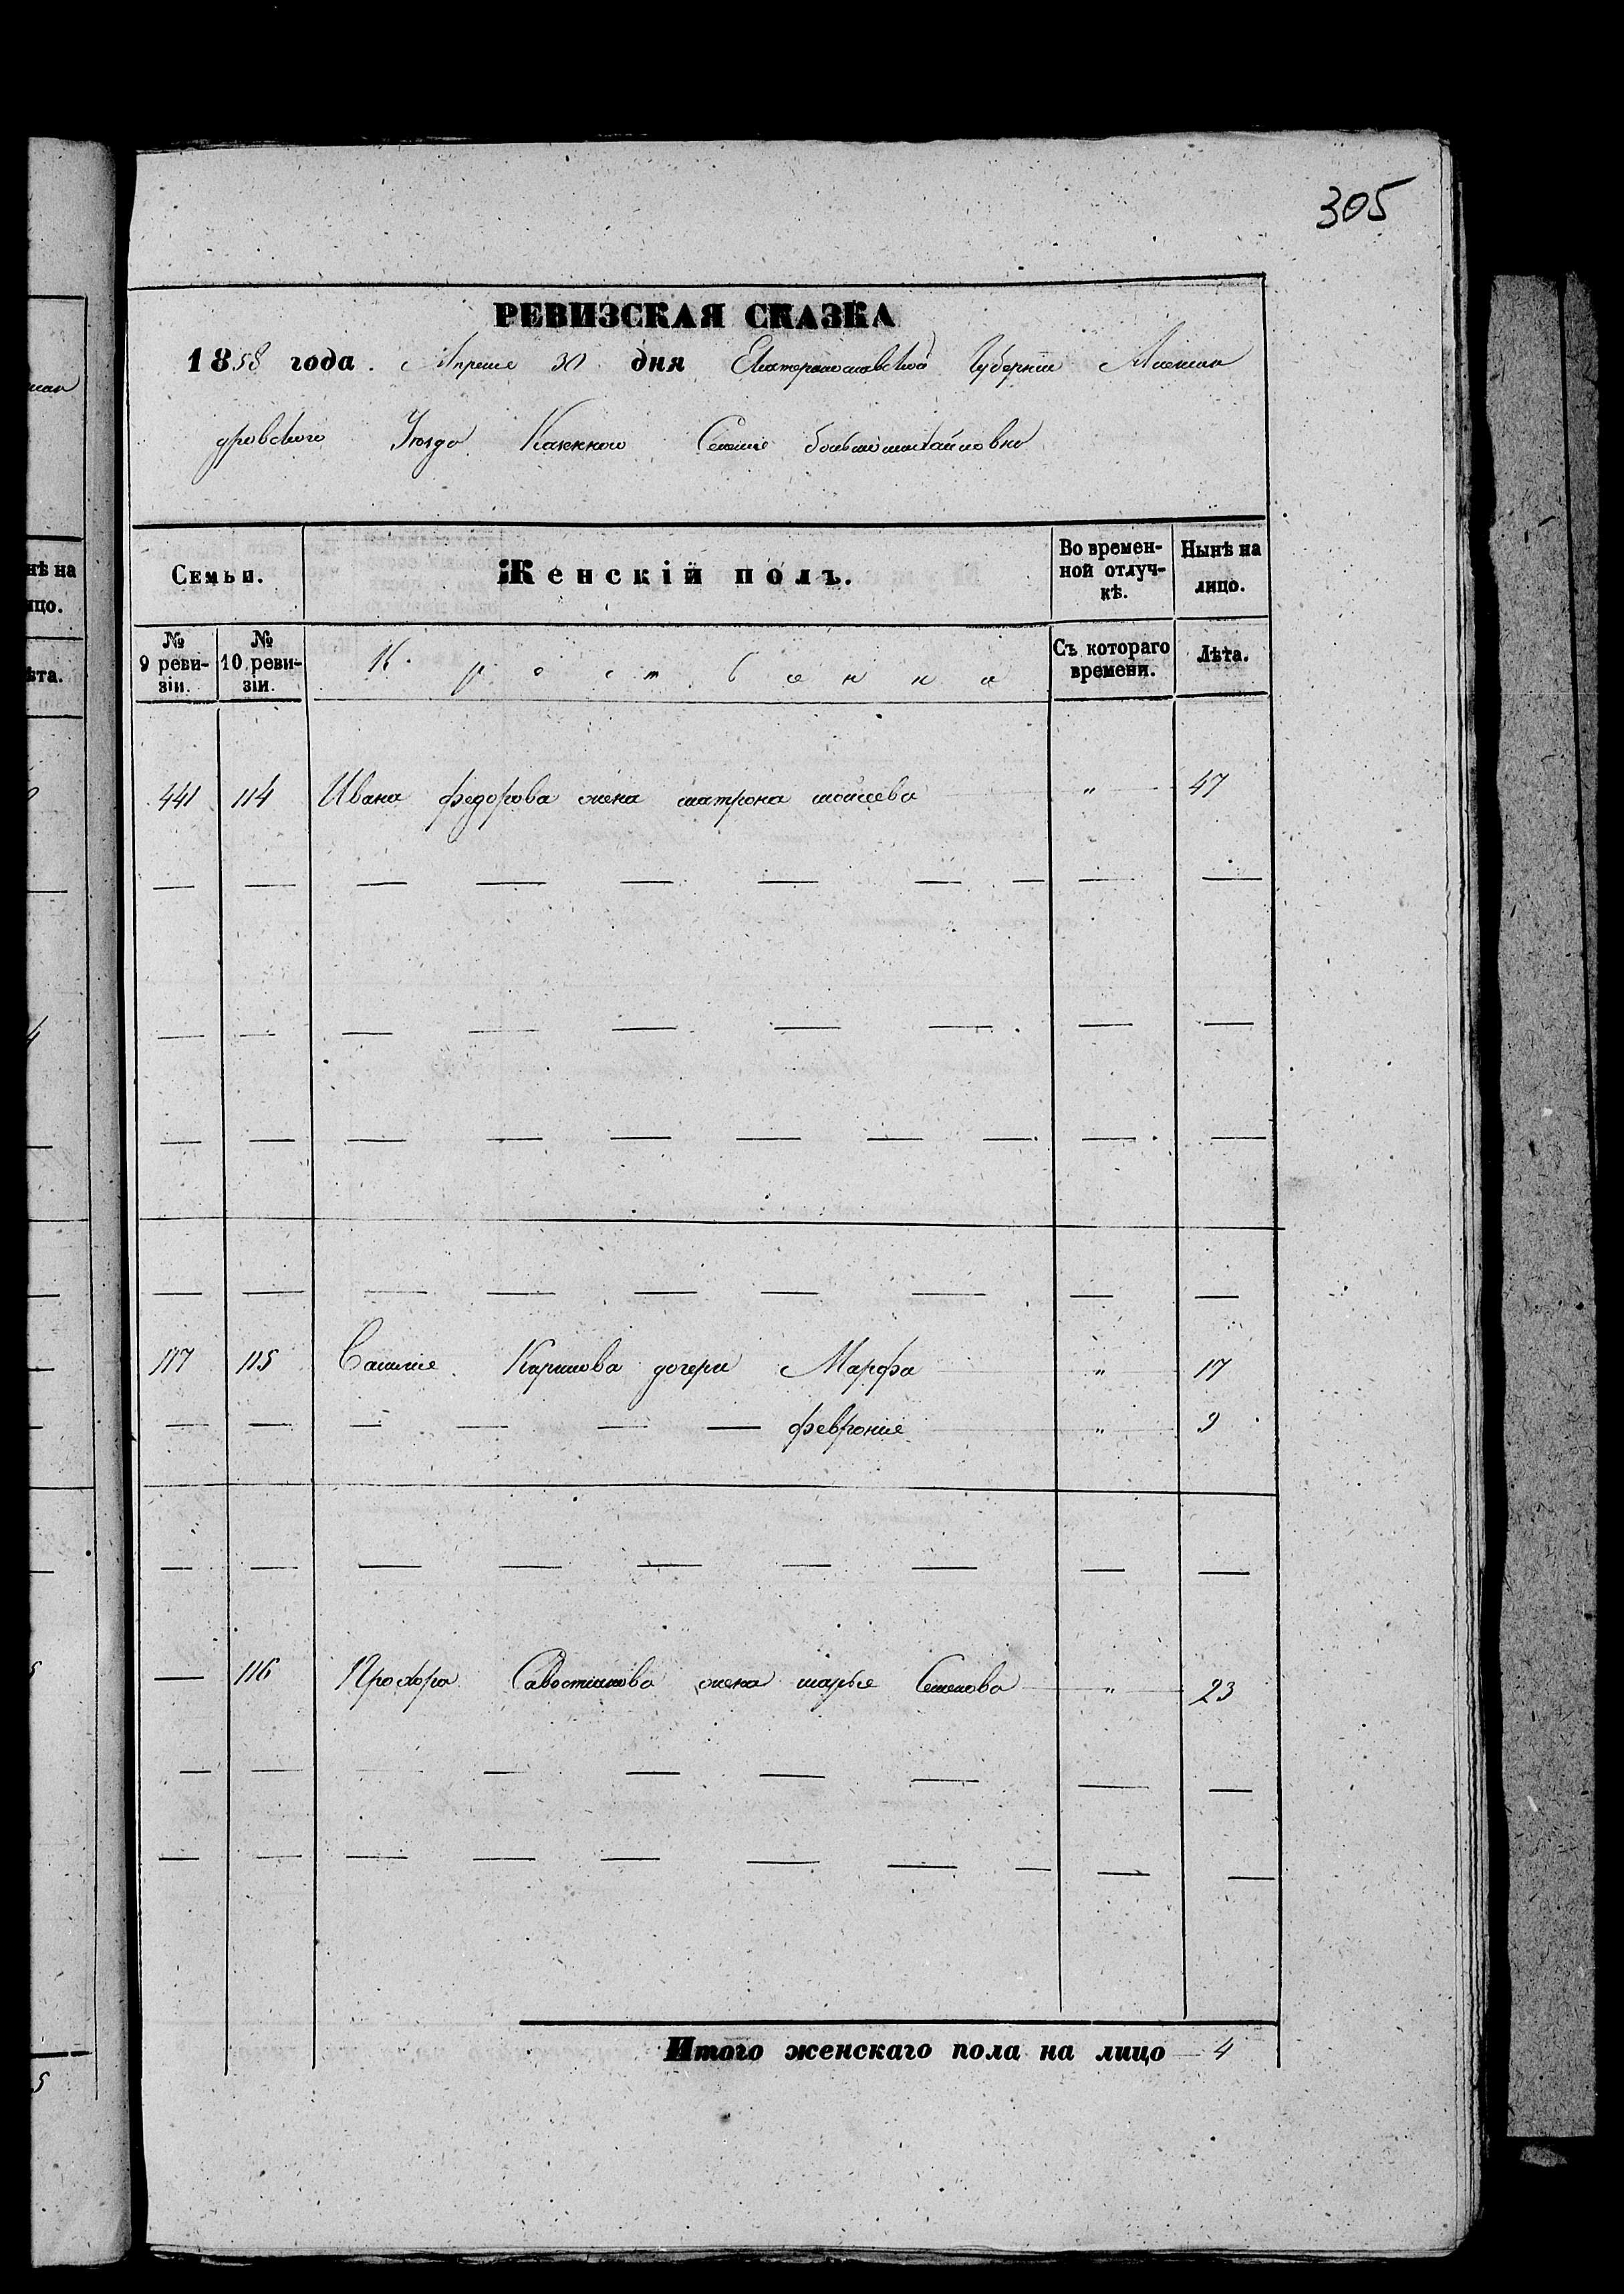 305
РЕВИЗСКАЯ СКАЗКА
1858 года. Апреля 30 дня Екатеринославской Губернии Алексан
дровского Уезда Казенного Селенiя больше михайловки
Семьи. Женскiй полъ. Во времен-ной отлуч-кѣ. Нынѣ на лицо.
№ 9 реви-зiи. № 10 реви-зiи. Съ котораго времени. Лѣта.
441 114 Ивана федорова жена матрона моисева " 47
117 115 Василiя Карпова дочери Марфа " 17
феврониiя " 9
116 Прохора Савостиянова жена марья Семенова " 23
Итого женскаго пола на лицо 4
нѣ на
ицо.
ѣта.